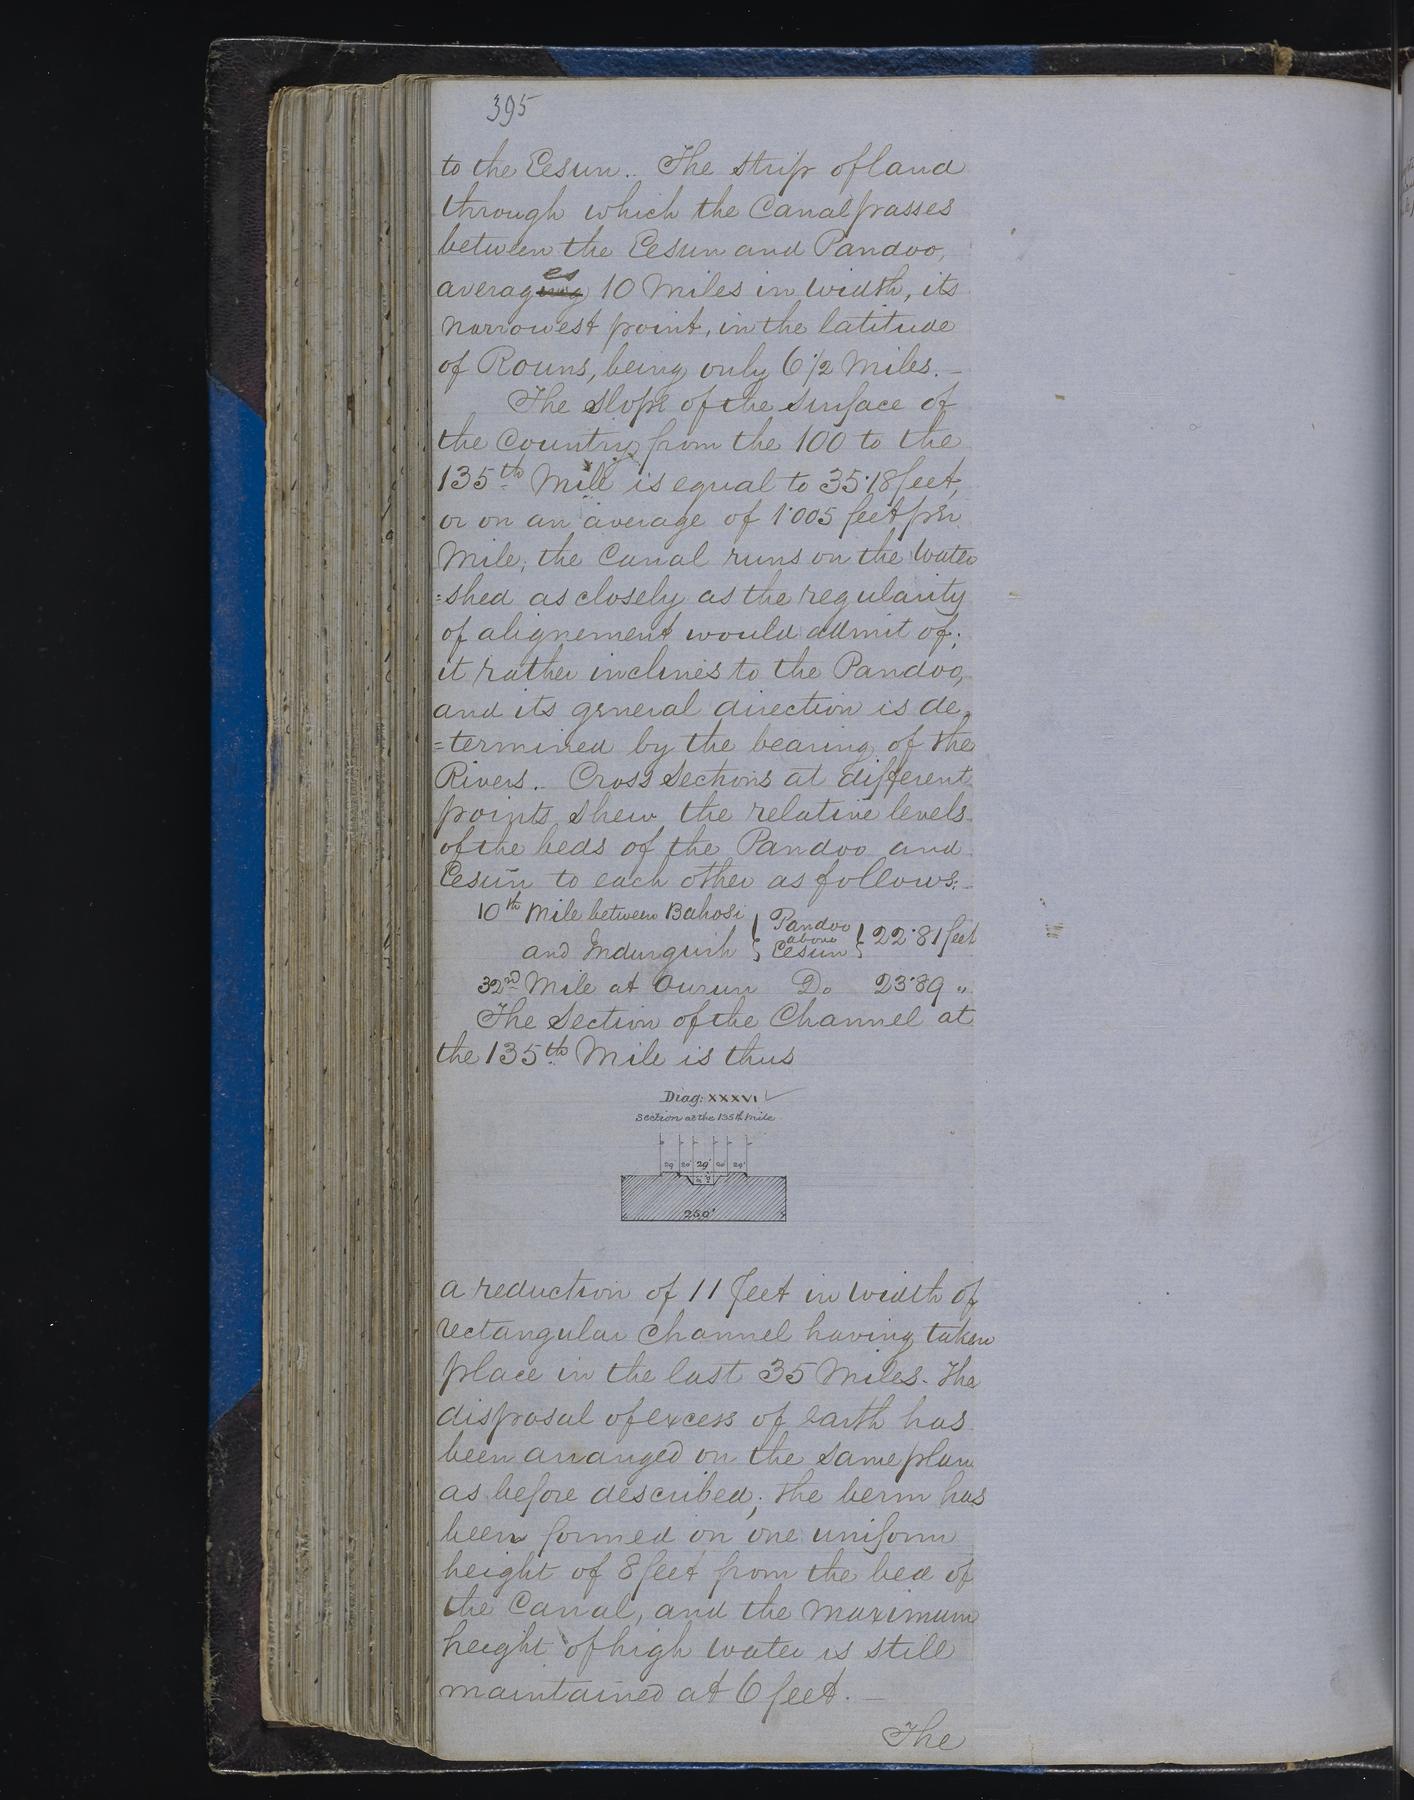 395
to the Eesun.. The strip of land
through which the Canal passes
between the Eesun and Pandoo,
averag~~ing~~es 10 Miles in width, its
narrowest point, in the latitude
of Rouns, being only 6 1/2 Miles. –
The slope of the surface of
the Country from the 100 to the
135th Mile is equal to 35·18 feet,
or on an average of 1·005 feet per
Mile; the Canal runs on the Water
=shed as closely as the regularity
of alignement would admit of;
it rather inclines to the Pandoo,
and its general direction is de
=termined by the bearing of the
Rivers.. Cross Sections at different
points shew the relative levels
of the beds of the Pandoo and
Eesun to each other as follows:–
10th Mile between Bahosi } Pandoo above Eesun } 22·81 feet
and
32nd Mile at Ourun Do 23·89 "
The Section of the Channel at
the 135th Mile is thus
Diag: XXXVI
Section at the 135th Mile
29' 20' 29' 20' 29'
250'
a reduction of 11 feet in width of
rectangular Channel having taken
place in the last 35 Miles. The
disposal of excess of earth has
been arranged on the same plan
as before described; the berm has
been formed on one uniform
height of 8 feet from the bed of
the Canal, and the maximum
height of high water is still
maintained at 6 feet. –
The